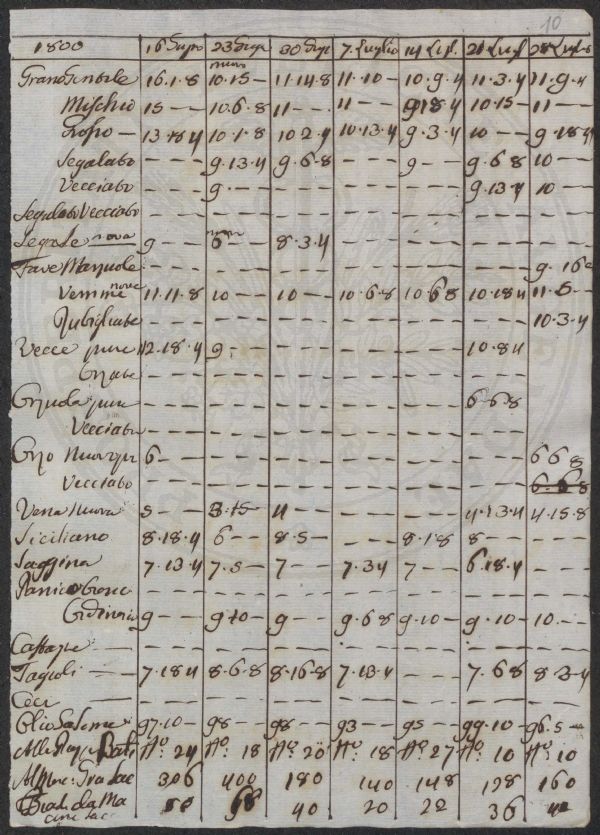 10
1800 16 Giug 23 Giug 30 Giug 7 Luglio 14 Lugl. 21 Lugl 28 Luglio
nuovo
Grano Gentile 16.1.8 10.15 - 11.14.8 11.10 - 10.9.4 11.3.4 11.9.4
Mischio 15 - - 10.6.8 11 - - 11 - - 9.18.4 10.15 - 11 - -
Grosso - 13.18.4 10.1.8 10.2.4 10.13.4 9.3.4 10 - - 9.18.4
Segalato - - - 9.13.4 9.6.8 - - - 9 - - 9.6.8 10 - -
Vecciato - - - 9. - - - - - - - - - - - 9.13.4 10 - -
Segalato Vecciato - - - - - - - - - - - - - - - - - - - - -
Segale nova 9 - - 6 - - 8.3.4 - - - - - - - - - - - -
Fave Marzuole - - - - - - - - - - - - - - - - - - 9.16
Vernine nove 11.11.8 10 - - 10 - - 10.6.8 10.6.8 10.18.4 11.6 -
- - - - - - - - - - - - - - - - - - 10.3.4
Vecce pure 12.18.4 9. - - - - - - - - - - - 10.8.4
- - - - - - - - - - - - - - - - - - - - -
pure - - - - - - - - - - - - - - - 6.6.8 - - -
Vecciata - - - - - - - - - - - - - - - - - - - - -
6 - - - - - - - - - - - - - - - - - 6.6.8
Vecciato - - - - - - - - - - - - - - - - - - 6.6.8
Vena Nuova 5 - - 3.15 - 4 - - - - - - - - 4.13.4 4.15.8
Siciliano 8.18.4 6 - - 8.5 - - - - 8.1.8 8 - - - - -
Saggina 7.13.4 7.5 - 7 - - 7.3.4 7 - - 6.18.4 - - -
Panico - - - - - - - - - - - - - - - - - - - - -
Ordinario 9 - - 9.10 - 9 - - 9.6.8 9.10 - 9.10 - 10. - -
- - - - - - - - - - - - - - - - - - - - -
Fagioli - 7.18.4 8.6.8 8.16.8 7.13.4 - - - 7.6.8 8.3.4
Ceci - - - - - - - - - - - - - - - - - - - - -
Olio La Soma 97.10 - 98 - - 98 - - 93 - - 95 - - 99.10 - 96.5 -
No. 24 No. 18 No. 20 No. 18 No. 27 No. 10 No. 10
306 400 180 140 148 128 160
da Ma 68 40 20 22 36